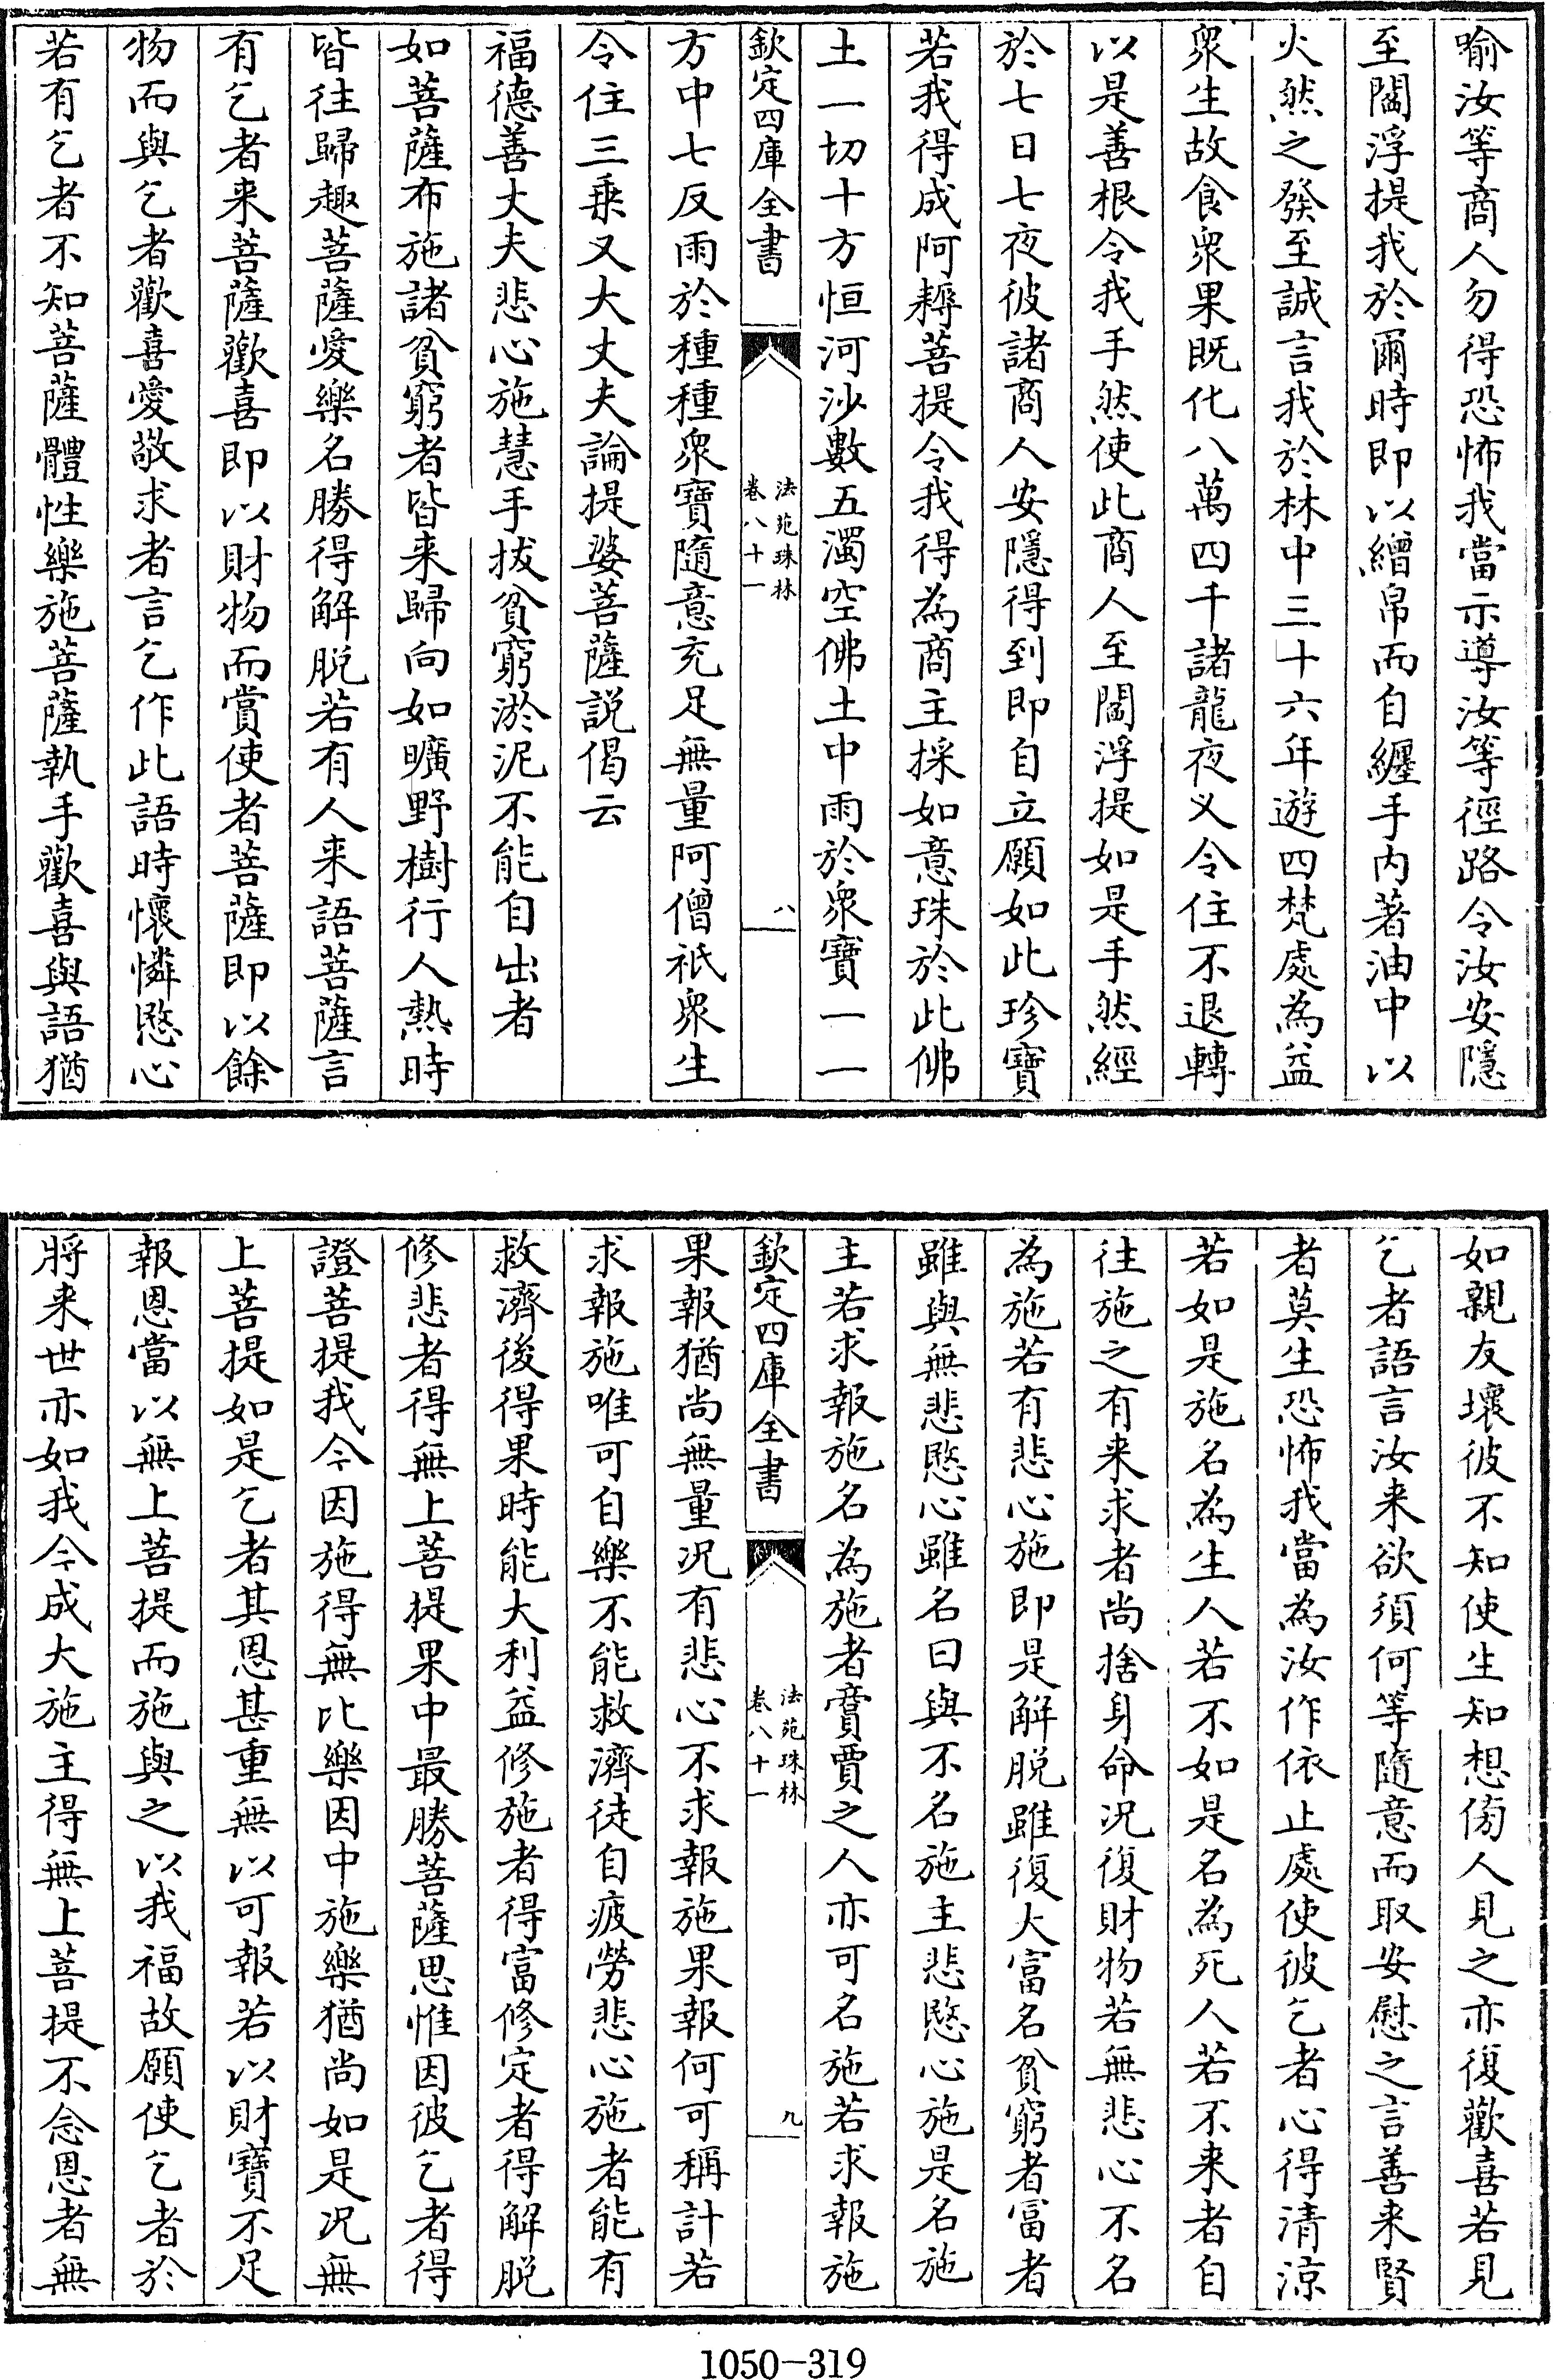 喻汝等商人勿得恐怖我當示導汝等徑路令汝安隱
至閻浮提我於爾時即以繒帛而自纒手内著油中以
火然之發至誠言我於林中三十六年遊四梵處為益
衆生故食衆果既化八萬四千諸龍夜乂令住不退轉
以是善根令我手然使此商人至閻浮提如是手然經
於七日七夜彼諸商人安隱得到即自立願如此珍寶
若我得成阿耨菩提令我得為商主採如意珠於此佛
土一切十方恒河沙數五濁空佛土中雨於衆寶一一
欽定四庫全書
法苑珠林
卷八十一
八
方中七反雨於種種衆寶隨意充足無量阿僧祇衆生
令住三乗又大丈夫論提婆菩薩説偈云
福德善丈夫悲心施慧手拔貧窮淤泥不能自出者
如菩薩布施諸貧窮者皆来歸向如曠野樹行人熱時
皆往歸趣菩薩愛樂名勝得解脱若有人来語菩薩言
有乞者来菩薩歡喜即以財物而賞使者菩薩即以餘
物而與乞者歡喜愛敬求者言乞作此語時懷憐愍心
若有乞者不知菩薩體性樂施菩薩執手歡喜與語猶
如親友壞彼不知使生知想傍人見之亦復歡喜若見
乞者語言汝来欲須何等隨意而取安慰之言善来賢
者莫生恐怖我當為汝作依止處使彼乞者心得清涼
若如是施名為生人若不如是名為死人若不来者自
往施之有来求者尚捨身命况復財物若無悲心不名
為施若有悲心施即是解脱雖復大富名貧窮者富者
雖與無悲愍心雖名曰與不名施主悲愍心施是名施
主若求報施名為施者賣賈之人亦可名施若求報施
欽定四庫全書
法苑珠林
卷八十一
九
果報猶尚無量况有悲心不求報施果報何可稱計若
求報施唯可自樂不能救濟徒自疲勞悲心施者能有
救濟後得果時能大利益修施者得富修定者得解脱
修悲者得無上菩提果中最勝菩薩思惟因彼乞者得
證菩提我今因施得無比樂因中施樂猶尚如是况無
上菩提如是乞者其恩甚重無以可報若以財寶不足
報恩當以無上菩提而施與之以我福故願使乞者於
將来世亦如我今成大施主得無上菩提不念恩者無
1050-319